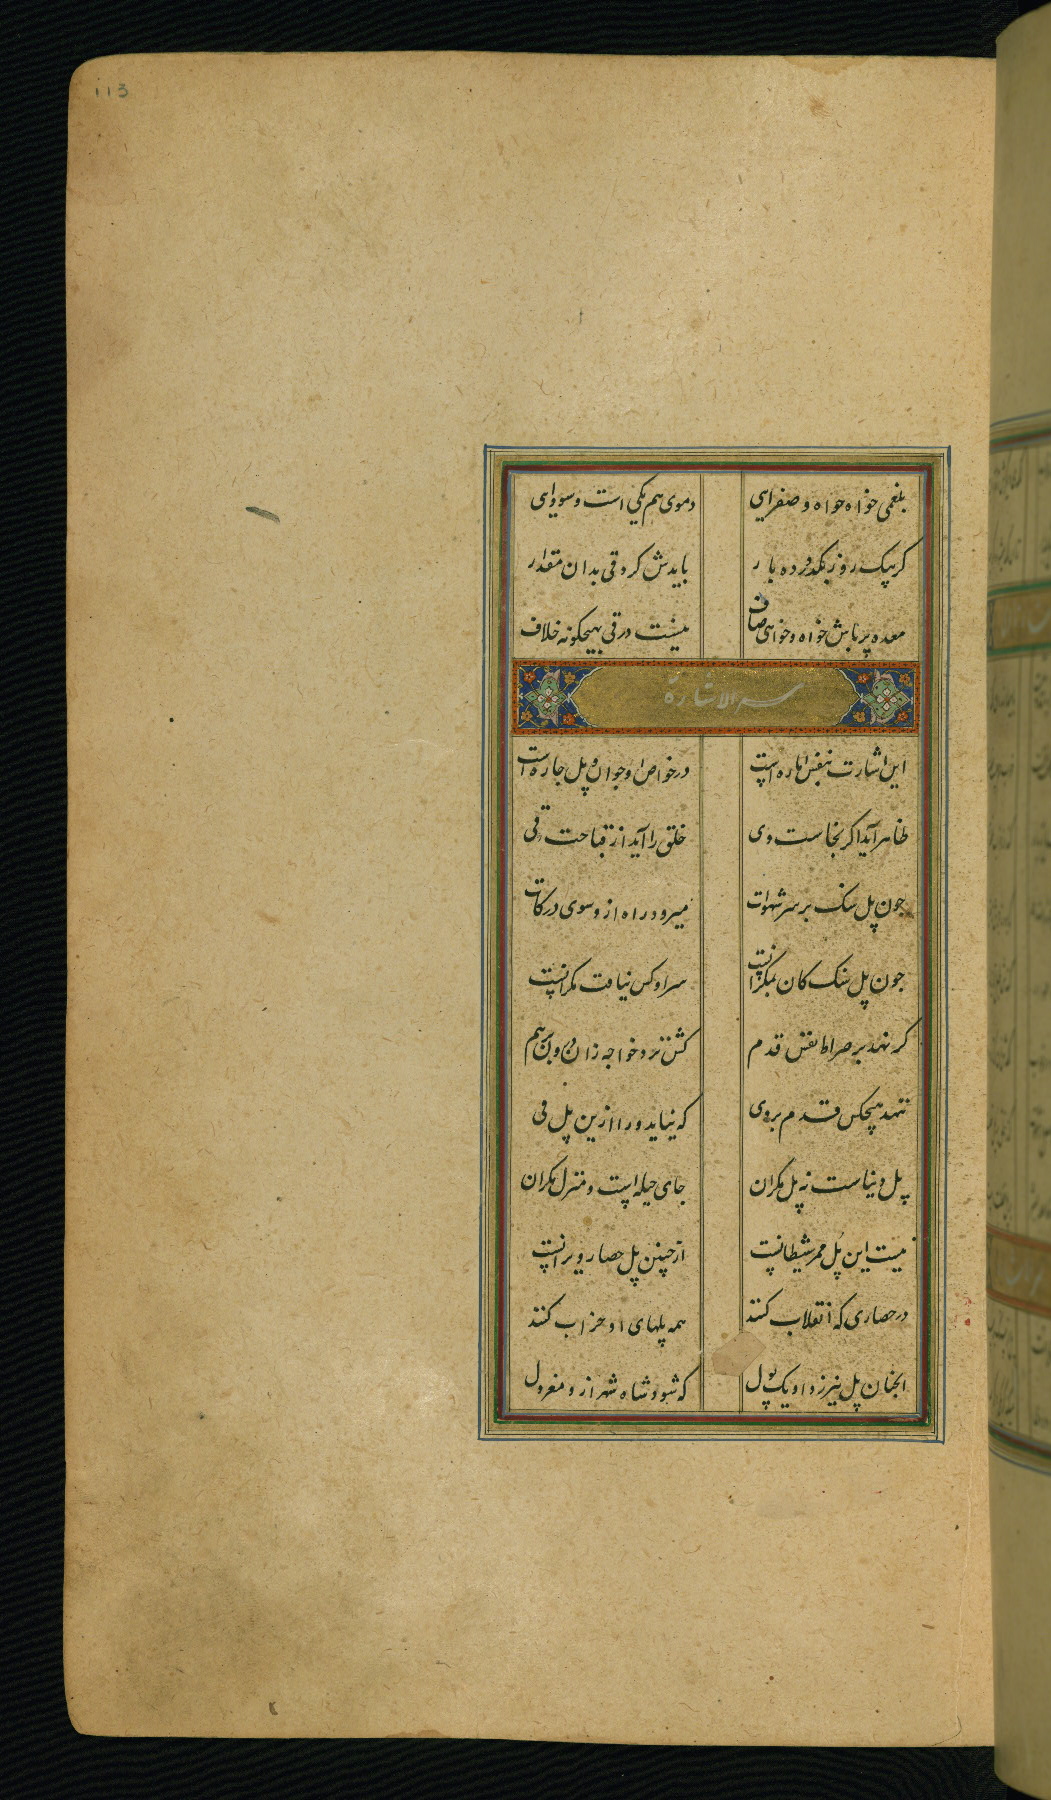 113
بلغمی خواه خواه و صفرایی دموی هم یکی است و سودایی
کر پیک روز بکدرد ده بار بایدش کرد قی بدان مقدار
معده پر باش خواه و خواهی صاف نیست در قی بهیچکونه خلاف
سر الاشارة
این اشارت بنفس اماره است در خواص او جوان پل جاره است
ظاهر آید اکر نجاست وی خلق را آید از قباحت قی
جون پل سنک بر سر شهوات میرود راه از و سوی درکات
جون پل سنک کان بمکرانست سر او کس نیافت مکرانست
کر نهد بر صراط نفس قدم
ننهد هیچکس قدم بروی که نیاید ورا ازین پل قی
پل دنیاست نه پل مکران جای حیله است و منزل مکران
نیست این پل ممر شیطانست از چنین پل حصار ویرانست
در حصاری که انقلاب کنند همه پلهای او خراب کنند
انجنان پل نیرزد او یک پول که شود شاه شهر ازو معزول